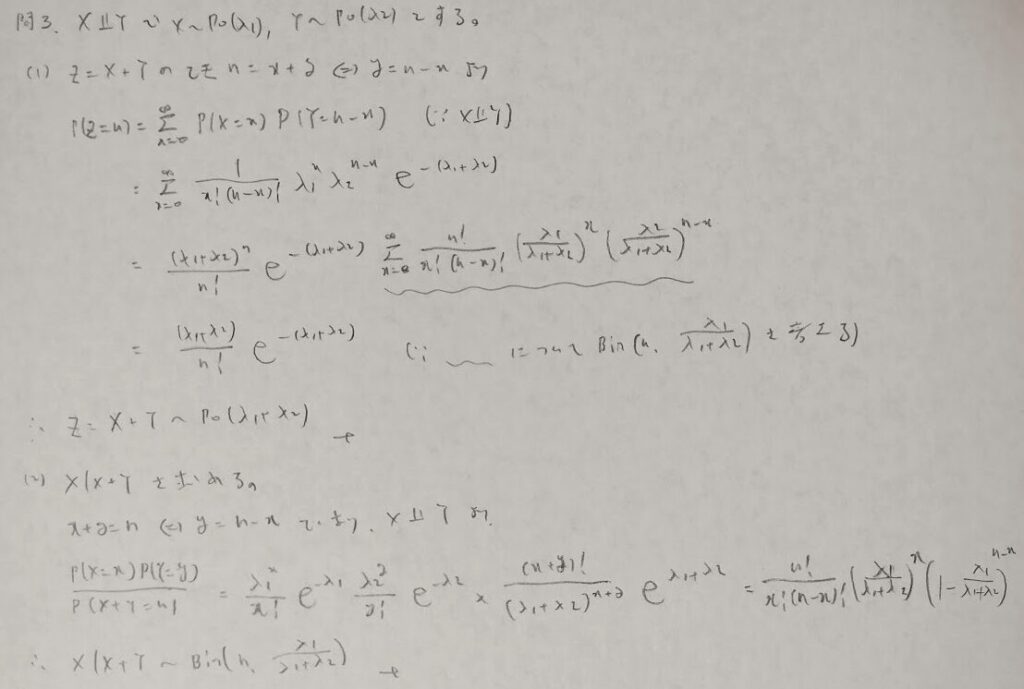 問3. X⫫Y で X~Po(λ1), Y~Po(λ2) とする。
(1) Z=X+Y のとき n=x+y ⇔ y=n-x より
P(Z=n) = Σ_{x=0}^{∞} P(X=x) P(Y=n-x) (∵ X⫫Y)
= Σ_{x=0}^{∞} 1/(x!(n-x)!) λ1^x λ2^{n-x} e^{-(λ1+λ2)}
= (λ1+λ2)^n/n! e^{-(λ1+λ2)} Σ_{x=0}^{∞} n!/(x!(n-x)!) (λ1/(λ1+λ2))^x (λ2/(λ1+λ2))^{n-x}
= (λ1+λ2)/n! e^{-(λ1+λ2)} (∵ 〰 について Bin(n, λ1/(λ1+λ2)) を考える)
∴ Z=X+Y ~ Po(λ1+λ2)
(2) X|X+Y を求める。
x+y=n ⇔ y=n-x であり, X⫫Y より
P(X=x)P(Y=y)/P(X+Y=n) = λ1^x/x! e^{-λ1} λ2^y/y! e^{-λ2} × (x+y)!/(λ1+λ2)^{x+y} e^{λ1+λ2} = n!/(x!(n-x)!) (λ1/(λ1+λ2))^x (1-λ1/(λ1+λ2))^{n-x}
∴ X|X+Y ~ Bin(n, λ1/(λ1+λ2))